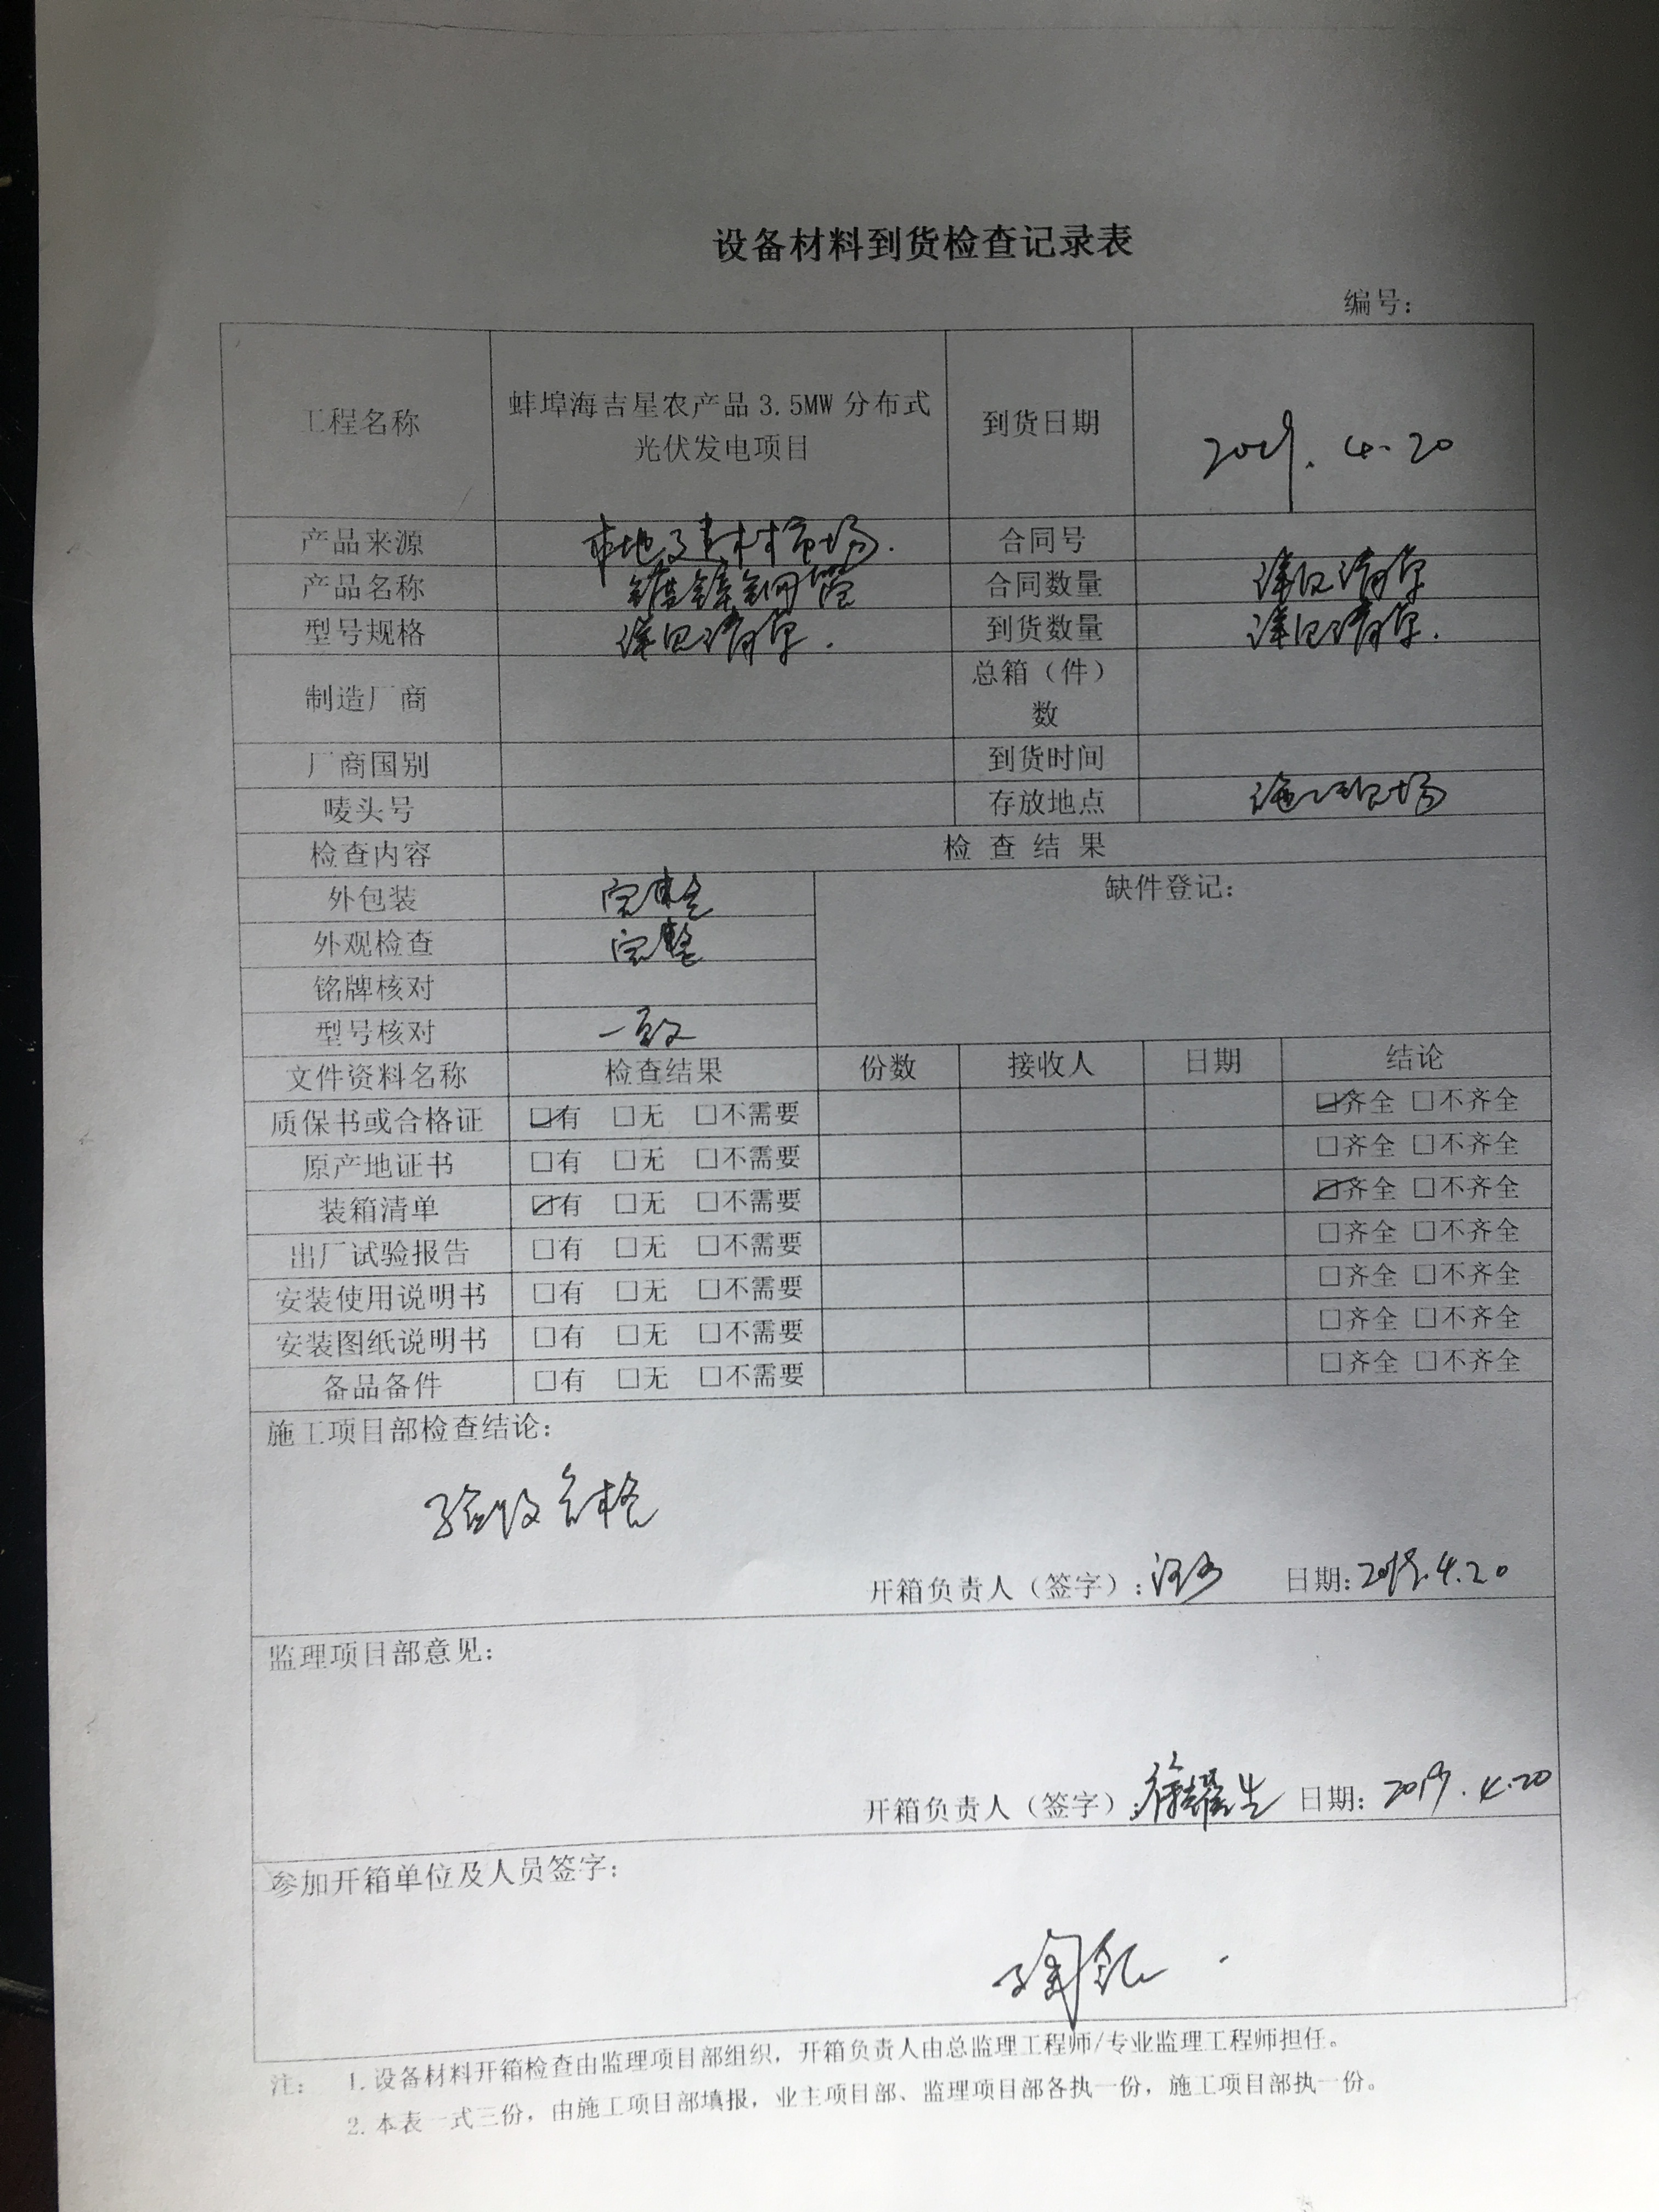 设备材料到货检查记录表
编号：
工程名称 蚌埠海吉星农产品3.5MW分布式光伏发电项目 到货日期 2019.4.20
产品来源 本地建材市场. 合同号
产品名称 镀锌钢管 合同数量 详见清单
型号规格 详见清单. 到货数量 详见清单.
制造厂商 总箱（件）数
厂商国别 到货时间
唛头号 存放地点 施工现场
检查内容 检查结果
外包装 完整 缺件登记：
外观检查 完整
铭牌核对
型号核对 一致
文件资料名称 检查结果 份数 接收人 日期 结论
质保书或合格证 ☑有 □无 □不需要 ☑齐全 □不齐全
原产地证书 □有 □无 □不需要 □齐全 □不齐全
装箱清单 ☑有 □无 □不需要 ☑齐全 □不齐全
出厂试验报告 □有 □无 □不需要 □齐全 □不齐全
安装使用说明书 □有 □无 □不需要 □齐全 □不齐全
安装图纸说明书 □有 □无 □不需要 □齐全 □不齐全
备品备件 □有 □无 □不需要 □齐全 □不齐全
施工项目部检查结论：
验收合格
开箱负责人（签字）： 日期：2019.4.20
监理项目部意见：
开箱负责人（签字）：徐耀生 日期：2019.4.20
参加开箱单位及人员签字：
注： 1.设备材料开箱检查由监理项目部组织，开箱负责人由总监理工程师/专业监理工程师担任。
2.本表一式三份，由施工项目部填报，业主项目部、监理项目部各执一份，施工项目部执一份。